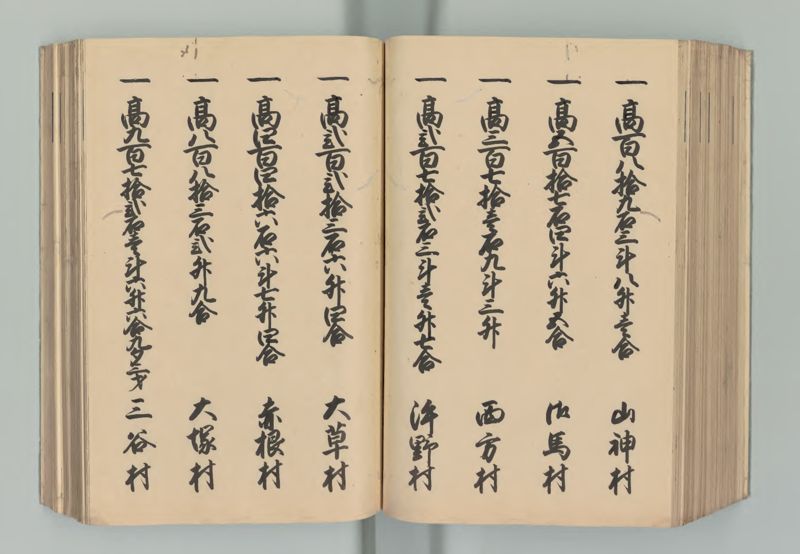 一 高百八拾九石三斗八升壱合 山神村
一 高五百拾七石四斗六升五合 御馬村
一 高三百七拾壱石九斗三升 西方村
一 高弐百七拾弐石三斗壱升七合 野村
一 高弐百弐拾三石六升四合 大草村
一 高四百四拾六石六斗七升四合 赤根村
一 高八百八拾三石弐升九合 大塚村
一 高九百七拾弐石壱斗六升六合九夕三才 三谷村